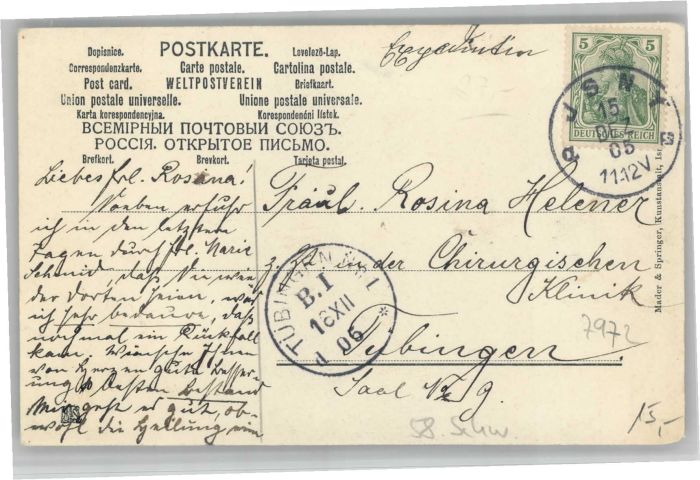 POSTKARTE.
Dopisnice. Levelező-Lap.
Correspondenzkarte. Carte postale. Cartolina postale.
Post card. WELTPOSTVEREIN Briefkaart.
Union postale universelle. Unione postale universale.
Karta korespondencyjna. Korespondenčni listek.
ВСЕМІРНЫЙ ПОЧТОВЫЙ СОЮЗЪ.
РОССІЯ. ОТКРЫТОЕ ПИСЬМО.
Brefkort. Brevkort. Tarjeta postal.
5 5
DEUTSCHES REICH
ISNY
15
DEZ
05
11-12V
Liebes Frl. Rosina!
Soeben erfuhr
ich in den letzten
Tagen durch Frl. Marie
Schmid, daß Sie wieder
dorten seien, was
ich sehr bedaure, daß
nochmal ein Rückfall
kam. Wünsche Ihnen
von Herzen gute Besser-
ung & besten Bestand
geht es gut, ob-
wohl die Heilung ein
Fräul. Rosina Helener
z. Zt. in der Chirurgischen
Klinik
Tübingen.
Saal No 9.
TÜBINGEN No 1
B.I
16 XII
05
Mader & Springer, Kunstanstalt, Isny
7972
58. Schw.
15,-